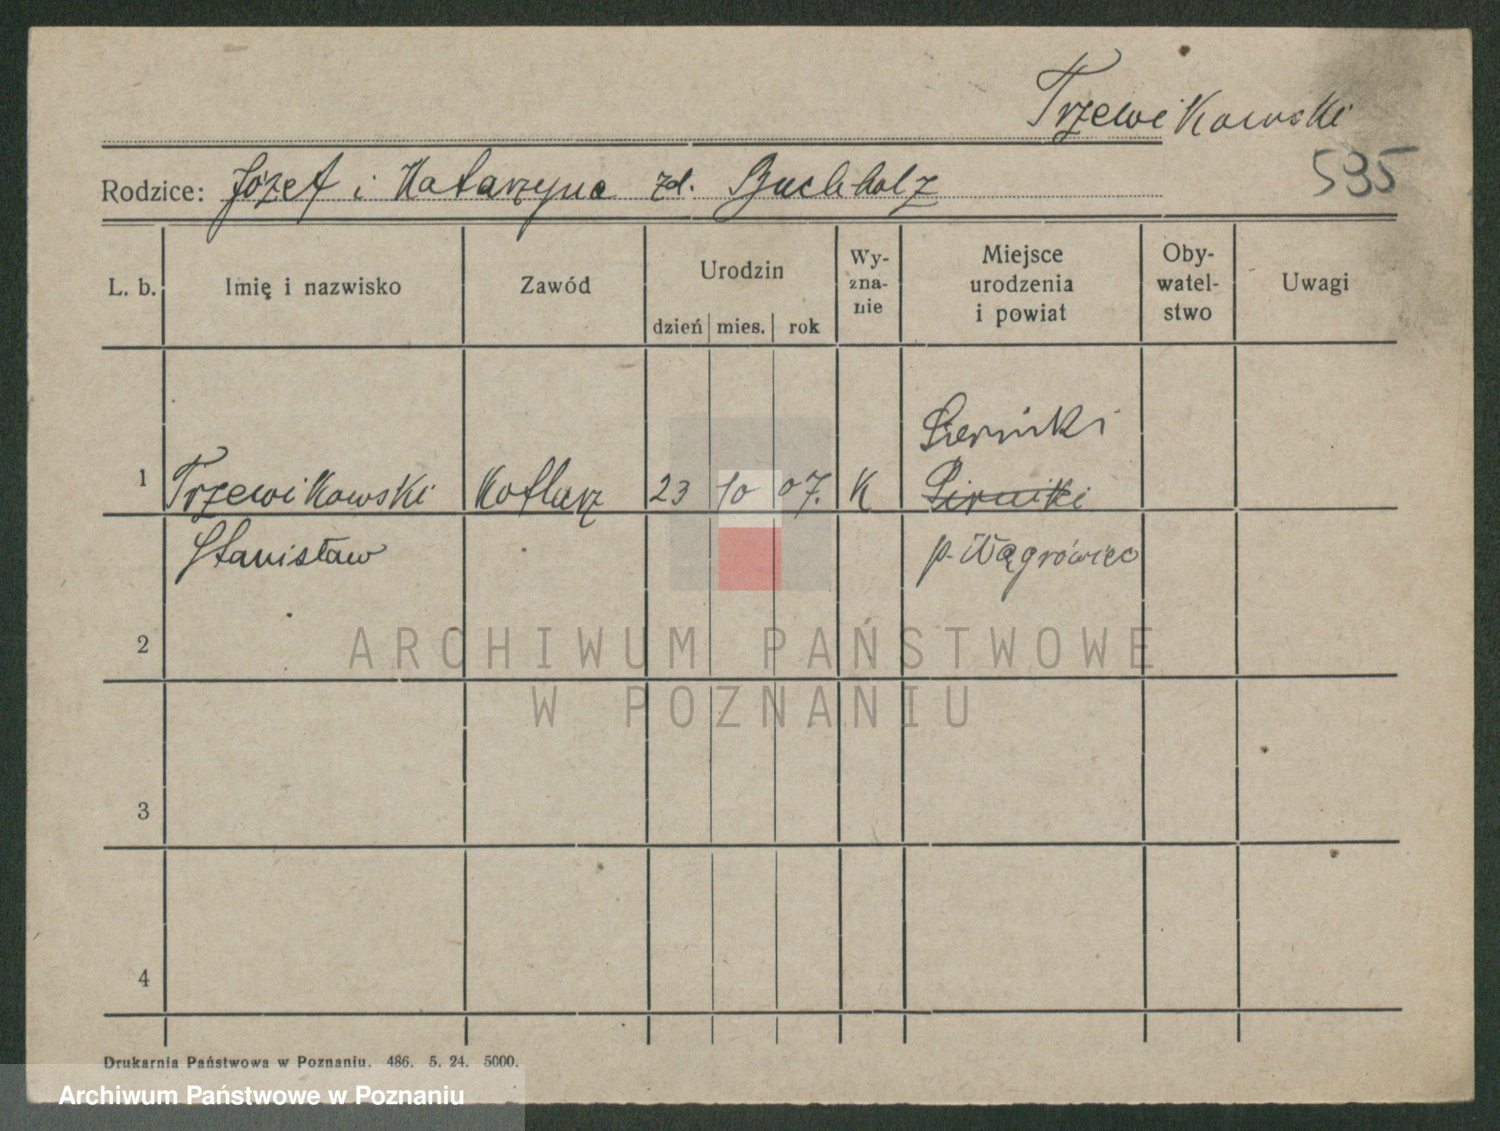 Trzewikowski
535
Rodzice: Józef i Katarzyna zd. Buchholz
L. b. Imię i nazwisko Zawód Urodzin dzień mies. rok Wy-zna-nie Miejsce urodzenia i powiat Oby-watel-stwo Uwagi
Sierniki
1 Trzewikowski Kotlarz 23 10 07. K Sierniki
Stanisław p. Wągrówiec
2
ARCHIWUM PAŃSTWOWE
W POZNANIU
3
4
Drukarnia Państwowa w Poznaniu. 486. 5. 24. 5000.
Archiwum Państwowe w Poznaniu